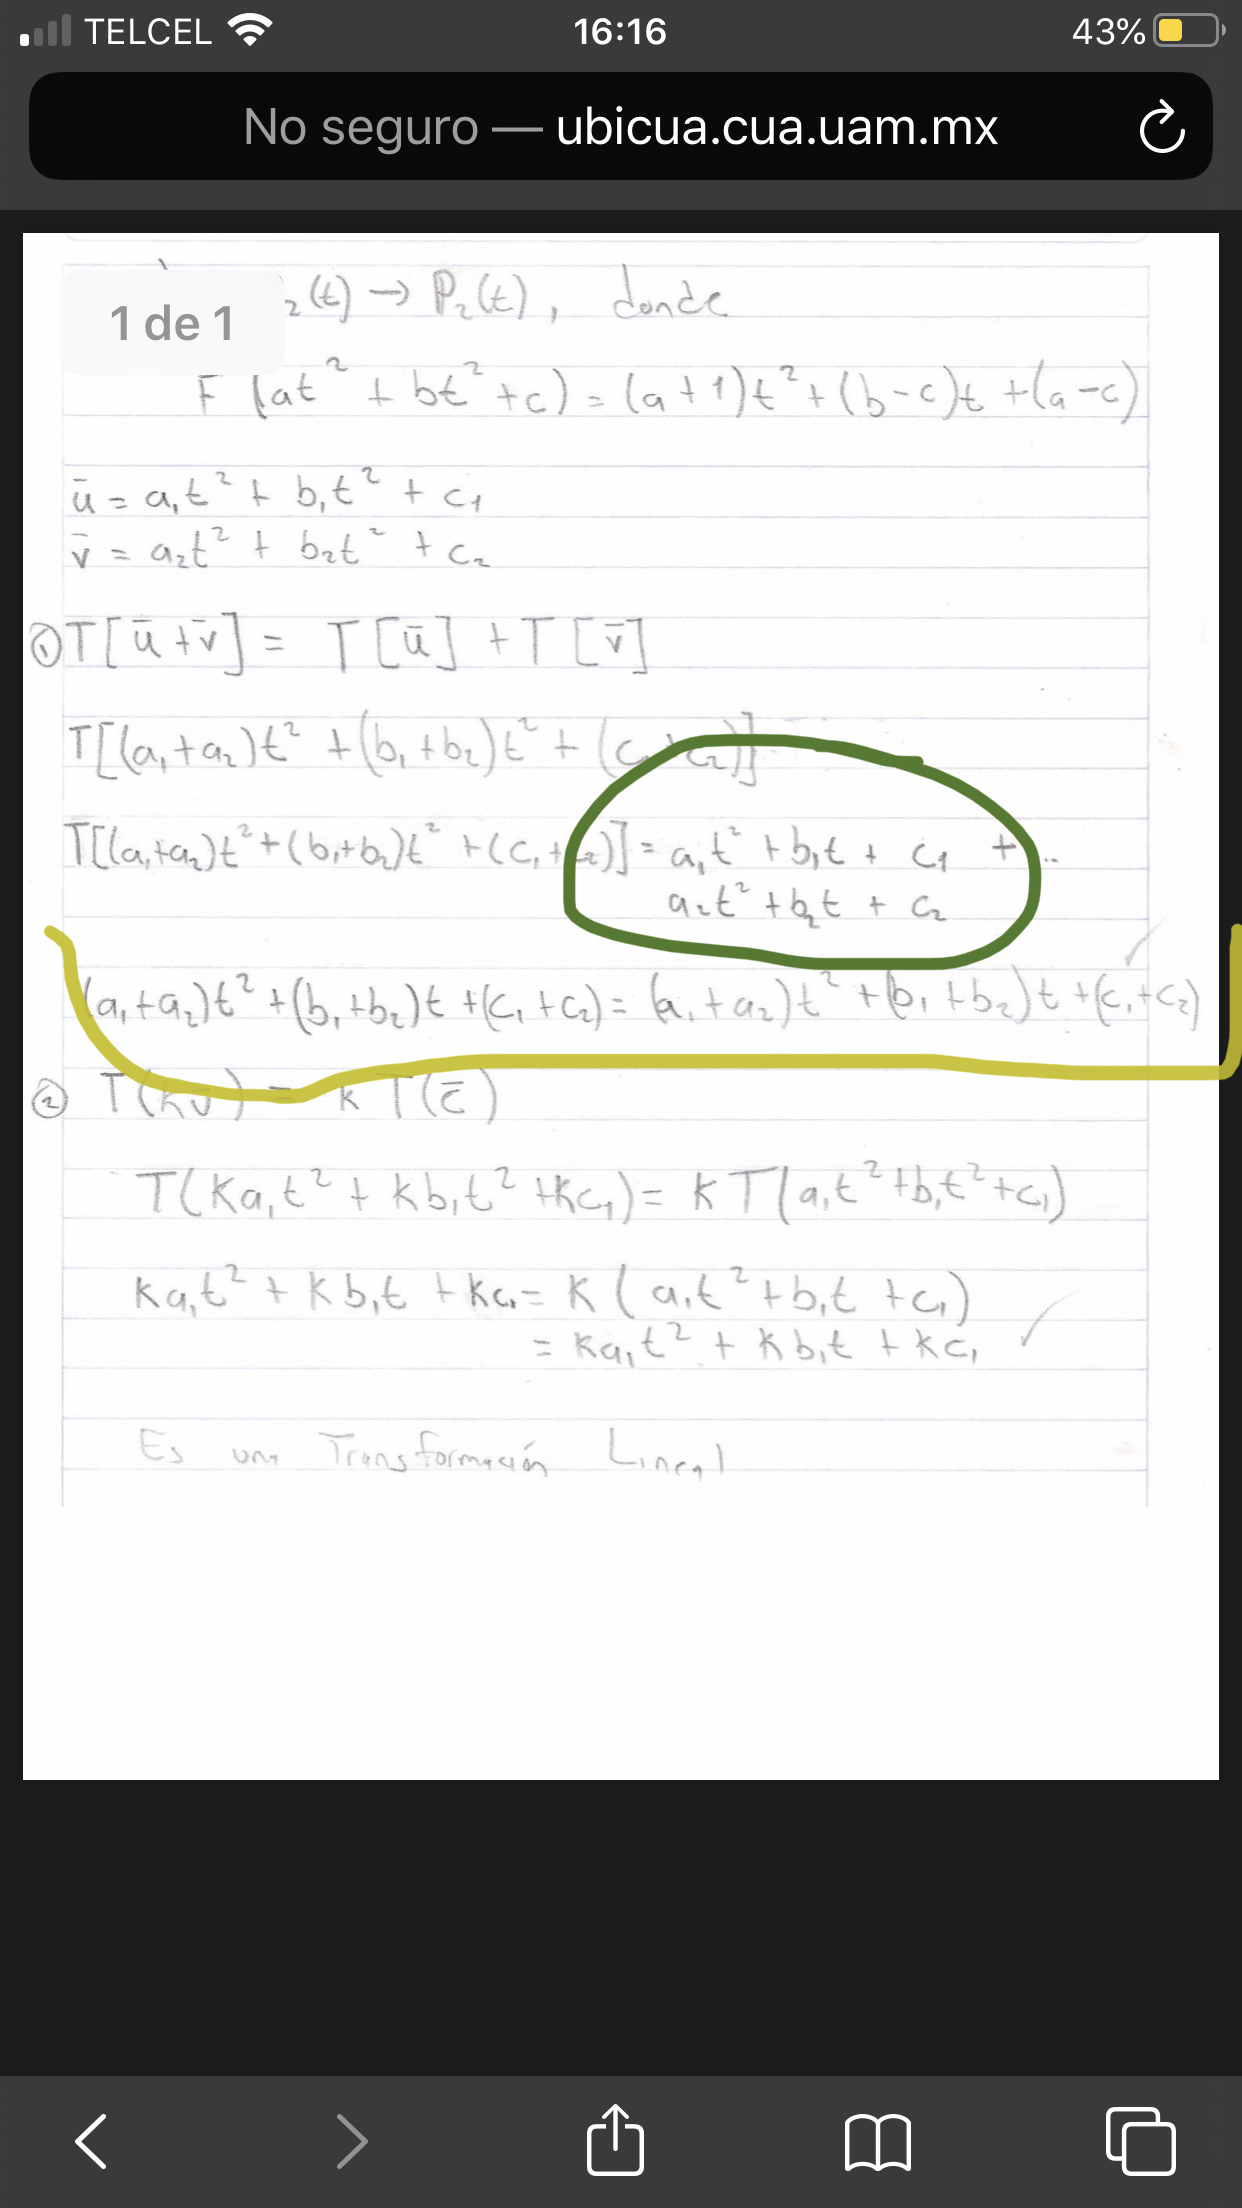 TELCEL 16:16 43%
No seguro — ubicua.cua.uam.mx
1 de 1
₂(t) → P₂(t), donde
F (at² + bt² + c) = (a+1)t² + (b-c)t + (a-c)
ū = a₁t² + b₁t² + c₁
v̄ = a₂t² + b₂t² + c₂
① T[ū + v̄] = T[ū] + T[v̄]
T[(a₁+a₂)t² + (b₁+b₂)t² + (c₁+c₂)]
T[(a₁+a₂)t² + (b₁+b₂)t² + (c₁+c₂)] = a₁t² + b₁t + c₁ + ..
a₂t² + b₂t + c₂
(a₁+a₂)t² + (b₁+b₂)t + (c₁+c₂) = (a₁+a₂)t² + (b₁+b₂)t + (c₁+c₂) ✓
② T(kv̄) = k T(c̄)
T(ka₁t² + kb₁t² + kc₁) = k T(a₁t² + b₁t² + c₁)
ka₁t² + kb₁t + kc₁ = k(a₁t² + b₁t + c₁)
= ka₁t² + kb₁t + kc₁ ✓
Es una Transformación Lineal